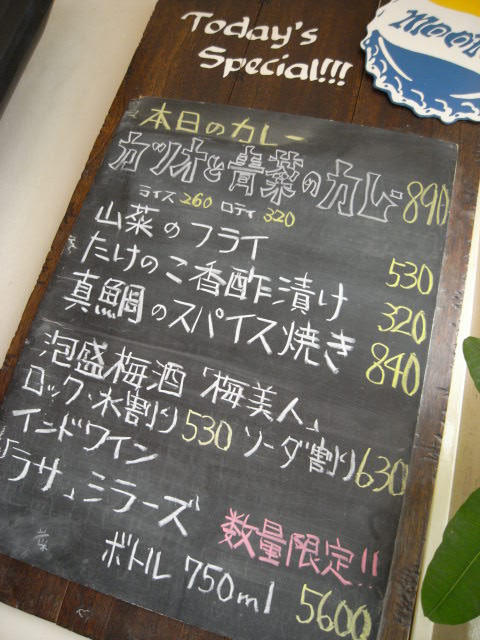 Today's
Special!!!
本日のカレー
カツオと青菜のカレー 890
ライス 260 ロティ 320
山菜のフライ 530
たけのこ香酢漬け 320
真鯛のスパイス焼き 840
泡盛梅酒「梅美人」
ロック・水割り 530 ソーダ割り 630
インドワイン
「ラサ」シラーズ
数量限定!!
ボトル 750ml 5600